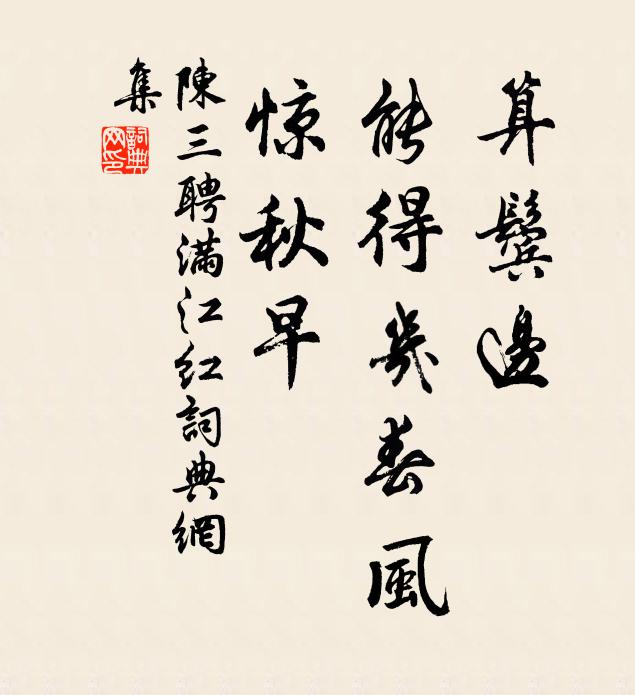 算鬓邊
能得幾春風
惊秋早
陳三聘滿江红詞典網
集
詞典網印